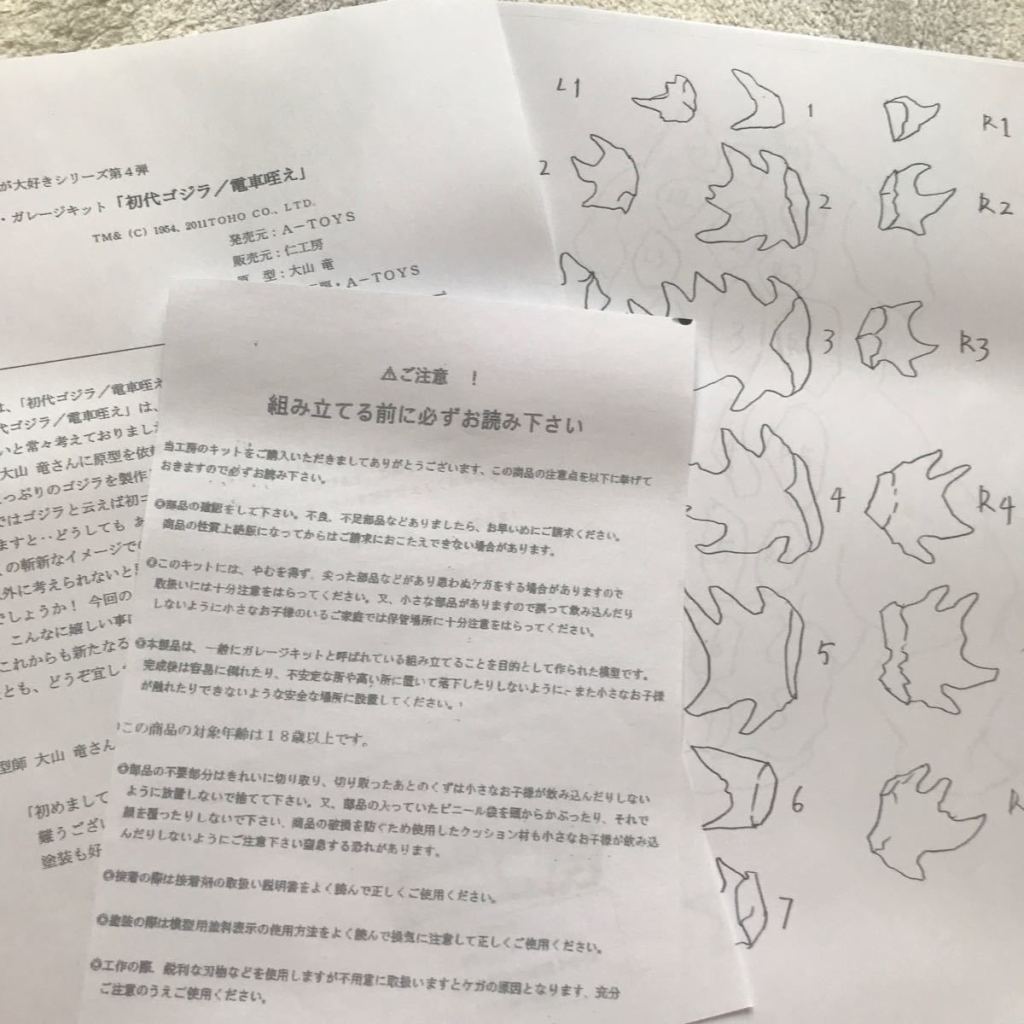 が大好きシリーズ第4弾
・ガレージキット「初代ゴジラ／電車咥え」
TM&(C) 1954, 2011TOHO CO., LTD.
発売元：A-TOYS
販売元：仁工房
型：大山 竜
・A-TOYS
は、「初代ゴジラ／電車咥え
代ゴジラ／電車咥え」は、
いと常々考えておりまし
大山 竜さんに原型を依
っぷりのゴジラを製作
ではゴジラと云えば初
ますと‥どうしても あ
の斬新なイメージで
外に考えられないと
でしょうか！ 今回の
こんなに嬉しい事
これからも新たなる
とも、どうぞ宜し
型師 大山 竜さん
「初めまして
難うござい
塗装も好
⚠ご注意　！
組み立てる前に必ずお読み下さい
当工房のキットをご購入いただきましてありがとうございます、この商品の注意点を以下に挙げて
おきますので必ずお読み下さい。
◎部品の確認をして下さい。不良、不足部品などありましたら、お早いめにご請求ください。
商品の性質上絶版になってからはご請求におこたえできない場合があります。
◎このキットには、やむを得ず、尖った部品などがあり思わぬケガをする場合がありますので
取扱いには十分注意をはらってください。又、小さな部品がありますので誤って飲み込んだり
しないように小さなお子様のいるご家庭では保管場所に十分注意をはらってください。
◎本部品は、一般にガレージキットと呼ばれている組み立てることを目的として作られた模型です。
完成後は容易に倒れたり、不安定な所や高い所に置いて落下したりしないように、また小さなお子様
が触れたりできないような安全な場所に設置してください。
◎この商品の対象年齢は18歳以上です。
◎部品の不要部分はきれいに切り取り、切り取ったあとのくずは小さなお子様が飲み込んだりしない
ように放置しないで捨てて下さい。又、部品の入っていたビニール袋を頭からかぶったり、それで
顔を覆ったりしないで下さい、商品の破損を防ぐため使用したクッション材も小さなお子様が飲み込
んだりしないようにご注意下さい窒息する恐れがあります。
◎接着の際は接着剤の取扱い説明書をよく読んで正しくご使用ください。
◎塗装の際は模型用塗料表示の使用方法をよく読んで換気に注意して正しくご使用ください。
◎工作の際、鋭利な刃物などを使用しますが不用意に取扱いますとケガの原因となります、充分
ご注意のうえご使用ください。
L1 1 R1
2 2 R2
3 R3
4 R4
5
6 R
7